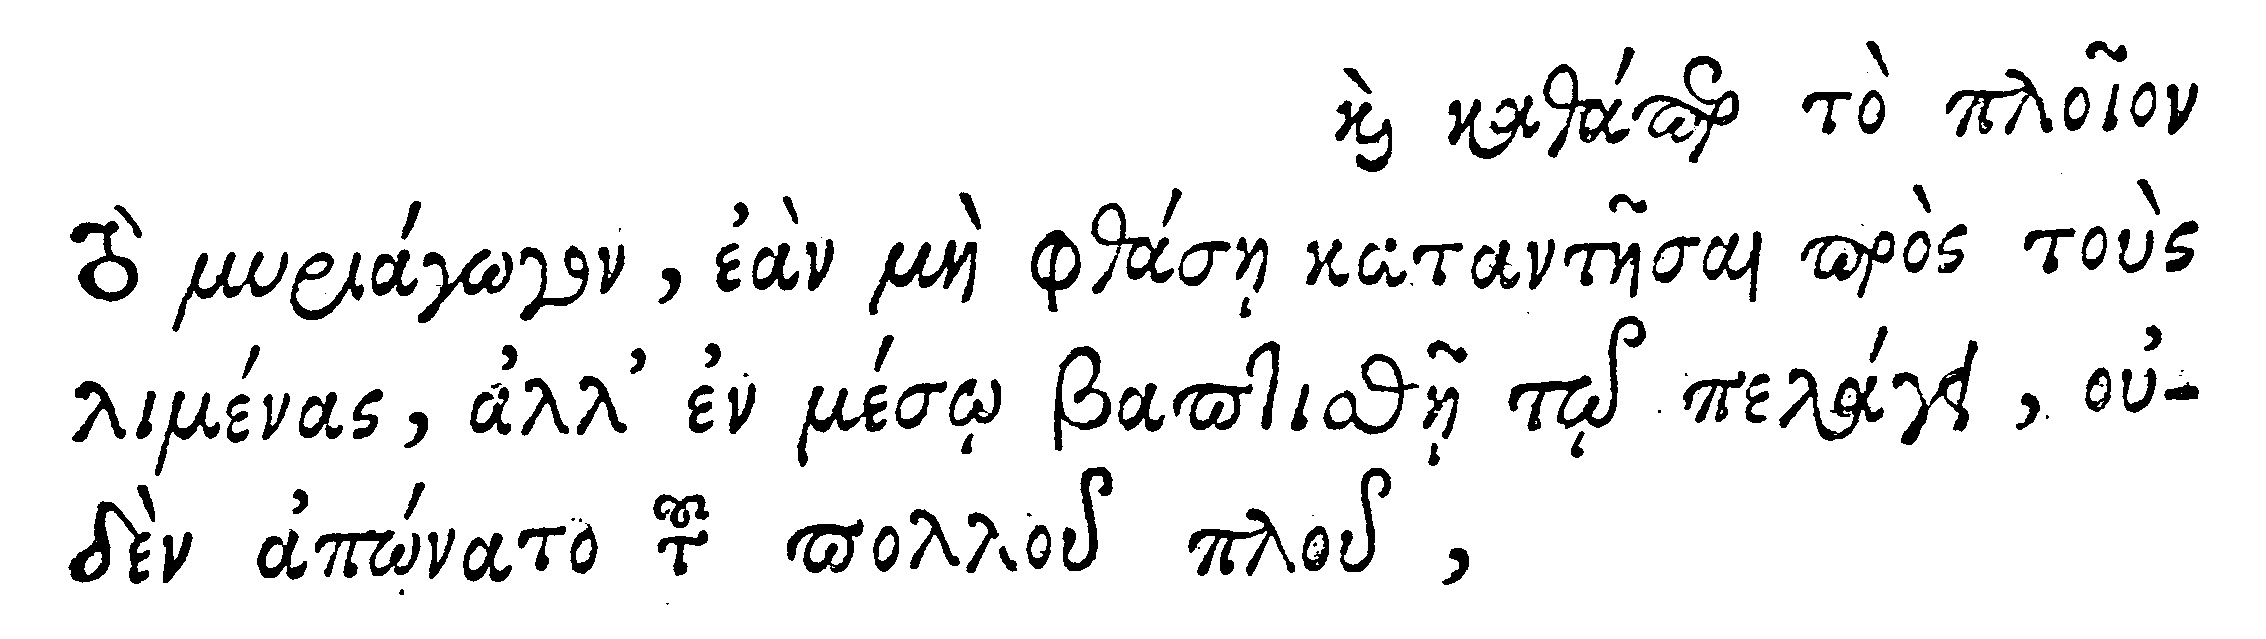 καὶ καθάπερ τὸ πλοῖον
τὸ μυριάγωγον, ἐὰν μὴ φθάσῃ καταντῆσαι πρὸς τοὺς
λιμένας, ἀλλ' ἐν μέσῳ βαπτισθῇ τῷ πελάγει, οὐ-
δὲν ἀπώνατο τοῦ πολλοῦ πλοῦ,